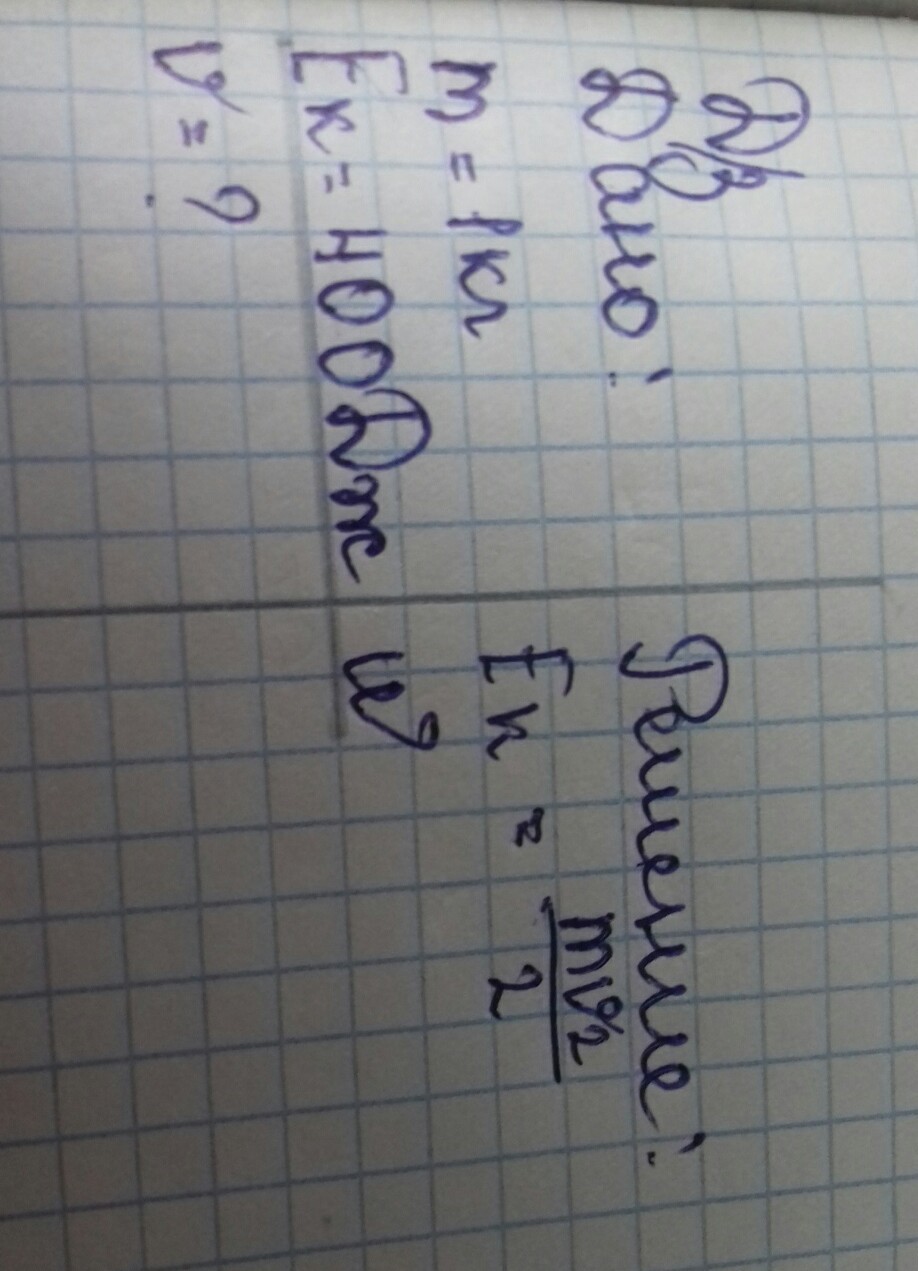 Д/З
Дано:
m = 1 кг
Eк = 400 Дж
v = ?
Решение:
Eк = mv²/2
v